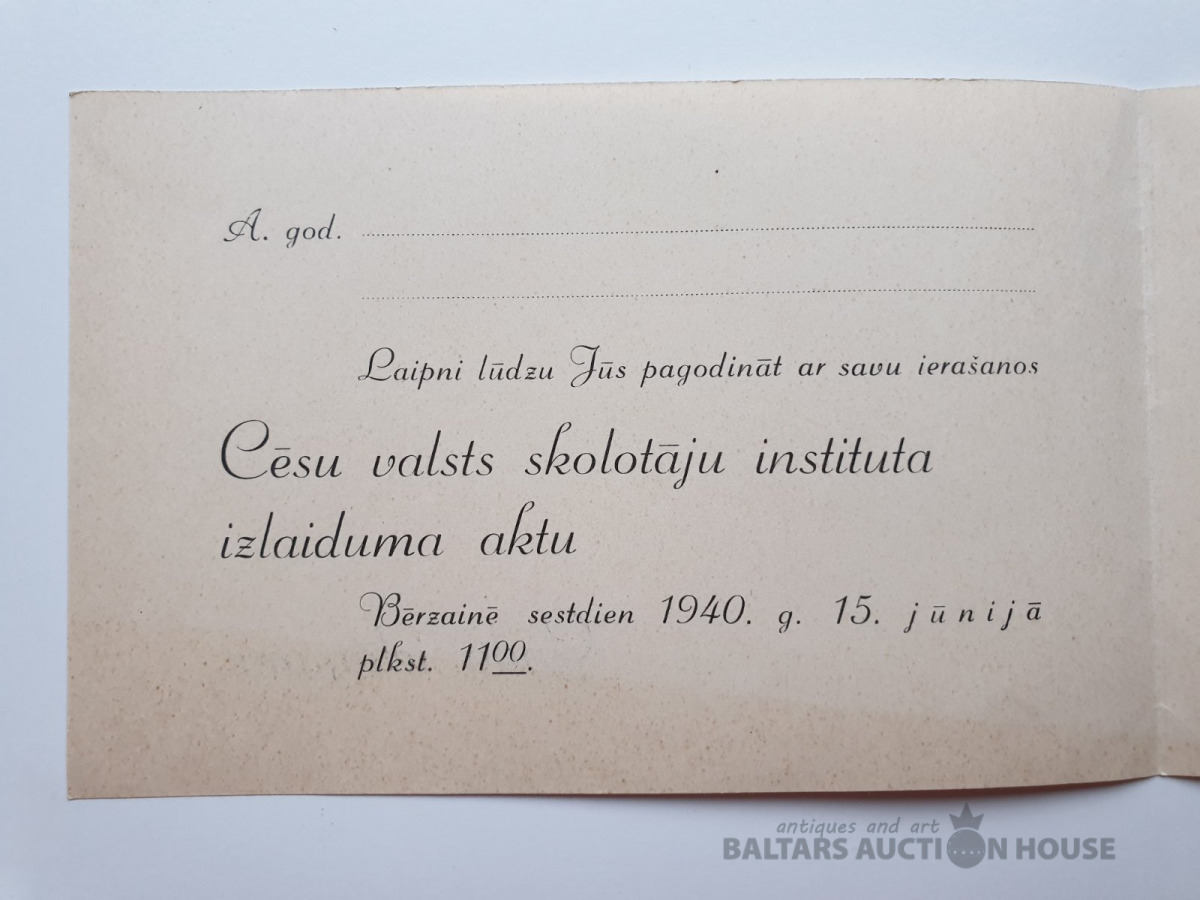 A. god.
Laipni lūdzu Jūs pagodināt ar savu ierašanos
Cēsu valsts skolotāju instituta
izlaiduma aktu
Bērzainē sestdien 1940. g. 15. jūnijā
plkst. 1100.
antiques and art
BALTARS AUCTION HOUSE